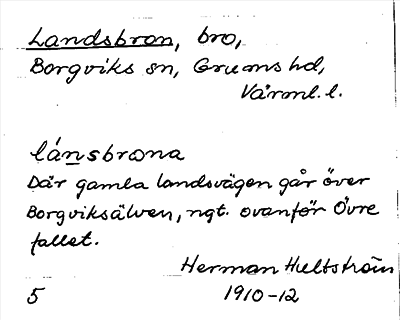 Landsbron, bro,
Borgviks sn, Grums hd,
Värml. l.
lánsbrona
Där gamla landsvägen går över
Borgviksälven, ngt. ovanför Övre
fallet.
Herman Hultström
5 1910-12